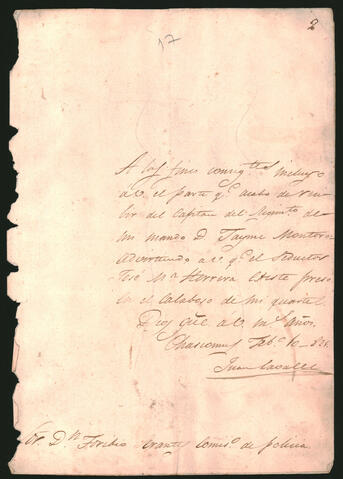 2
17
A los fines consig.tes incluyo
a V. el parte q.e acaba de
del Capitan del Regim.to de
mi mando D. Jayme Montoro
advirtiendo a V. q.e el Seductor
José M.a Herrera existe preso
en el Calaboso de mi quartel
Dios gũe a V. m.s años.
Chascomus Feb.o 10 de
Juan Lavalle
Sr. D.n Toribio Comis.o de policia